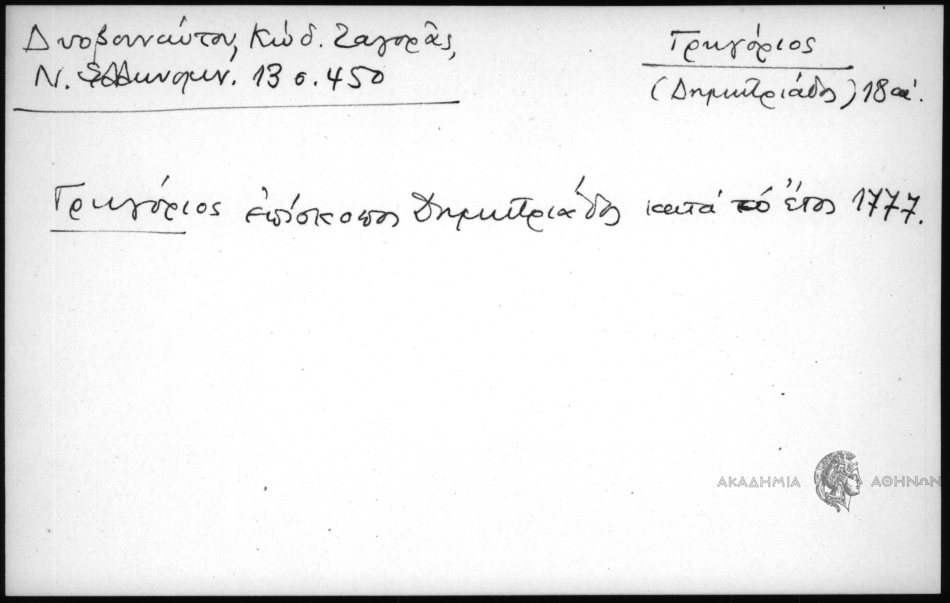 Δυοβουνιώτου, Κώδ. Ζαγορᾶς,
Ν. Ἑλληνομν. 13 σ. 450
Γρηγόριος
(Δημητριάδος) 18 αἰ.
Γρηγόριος ἐπίσκοπος Δημητριάδος κατά τό ἔτος 1777.
ΑΚΑΔΗΜΙΑ ΑΘΗΝΩΝ